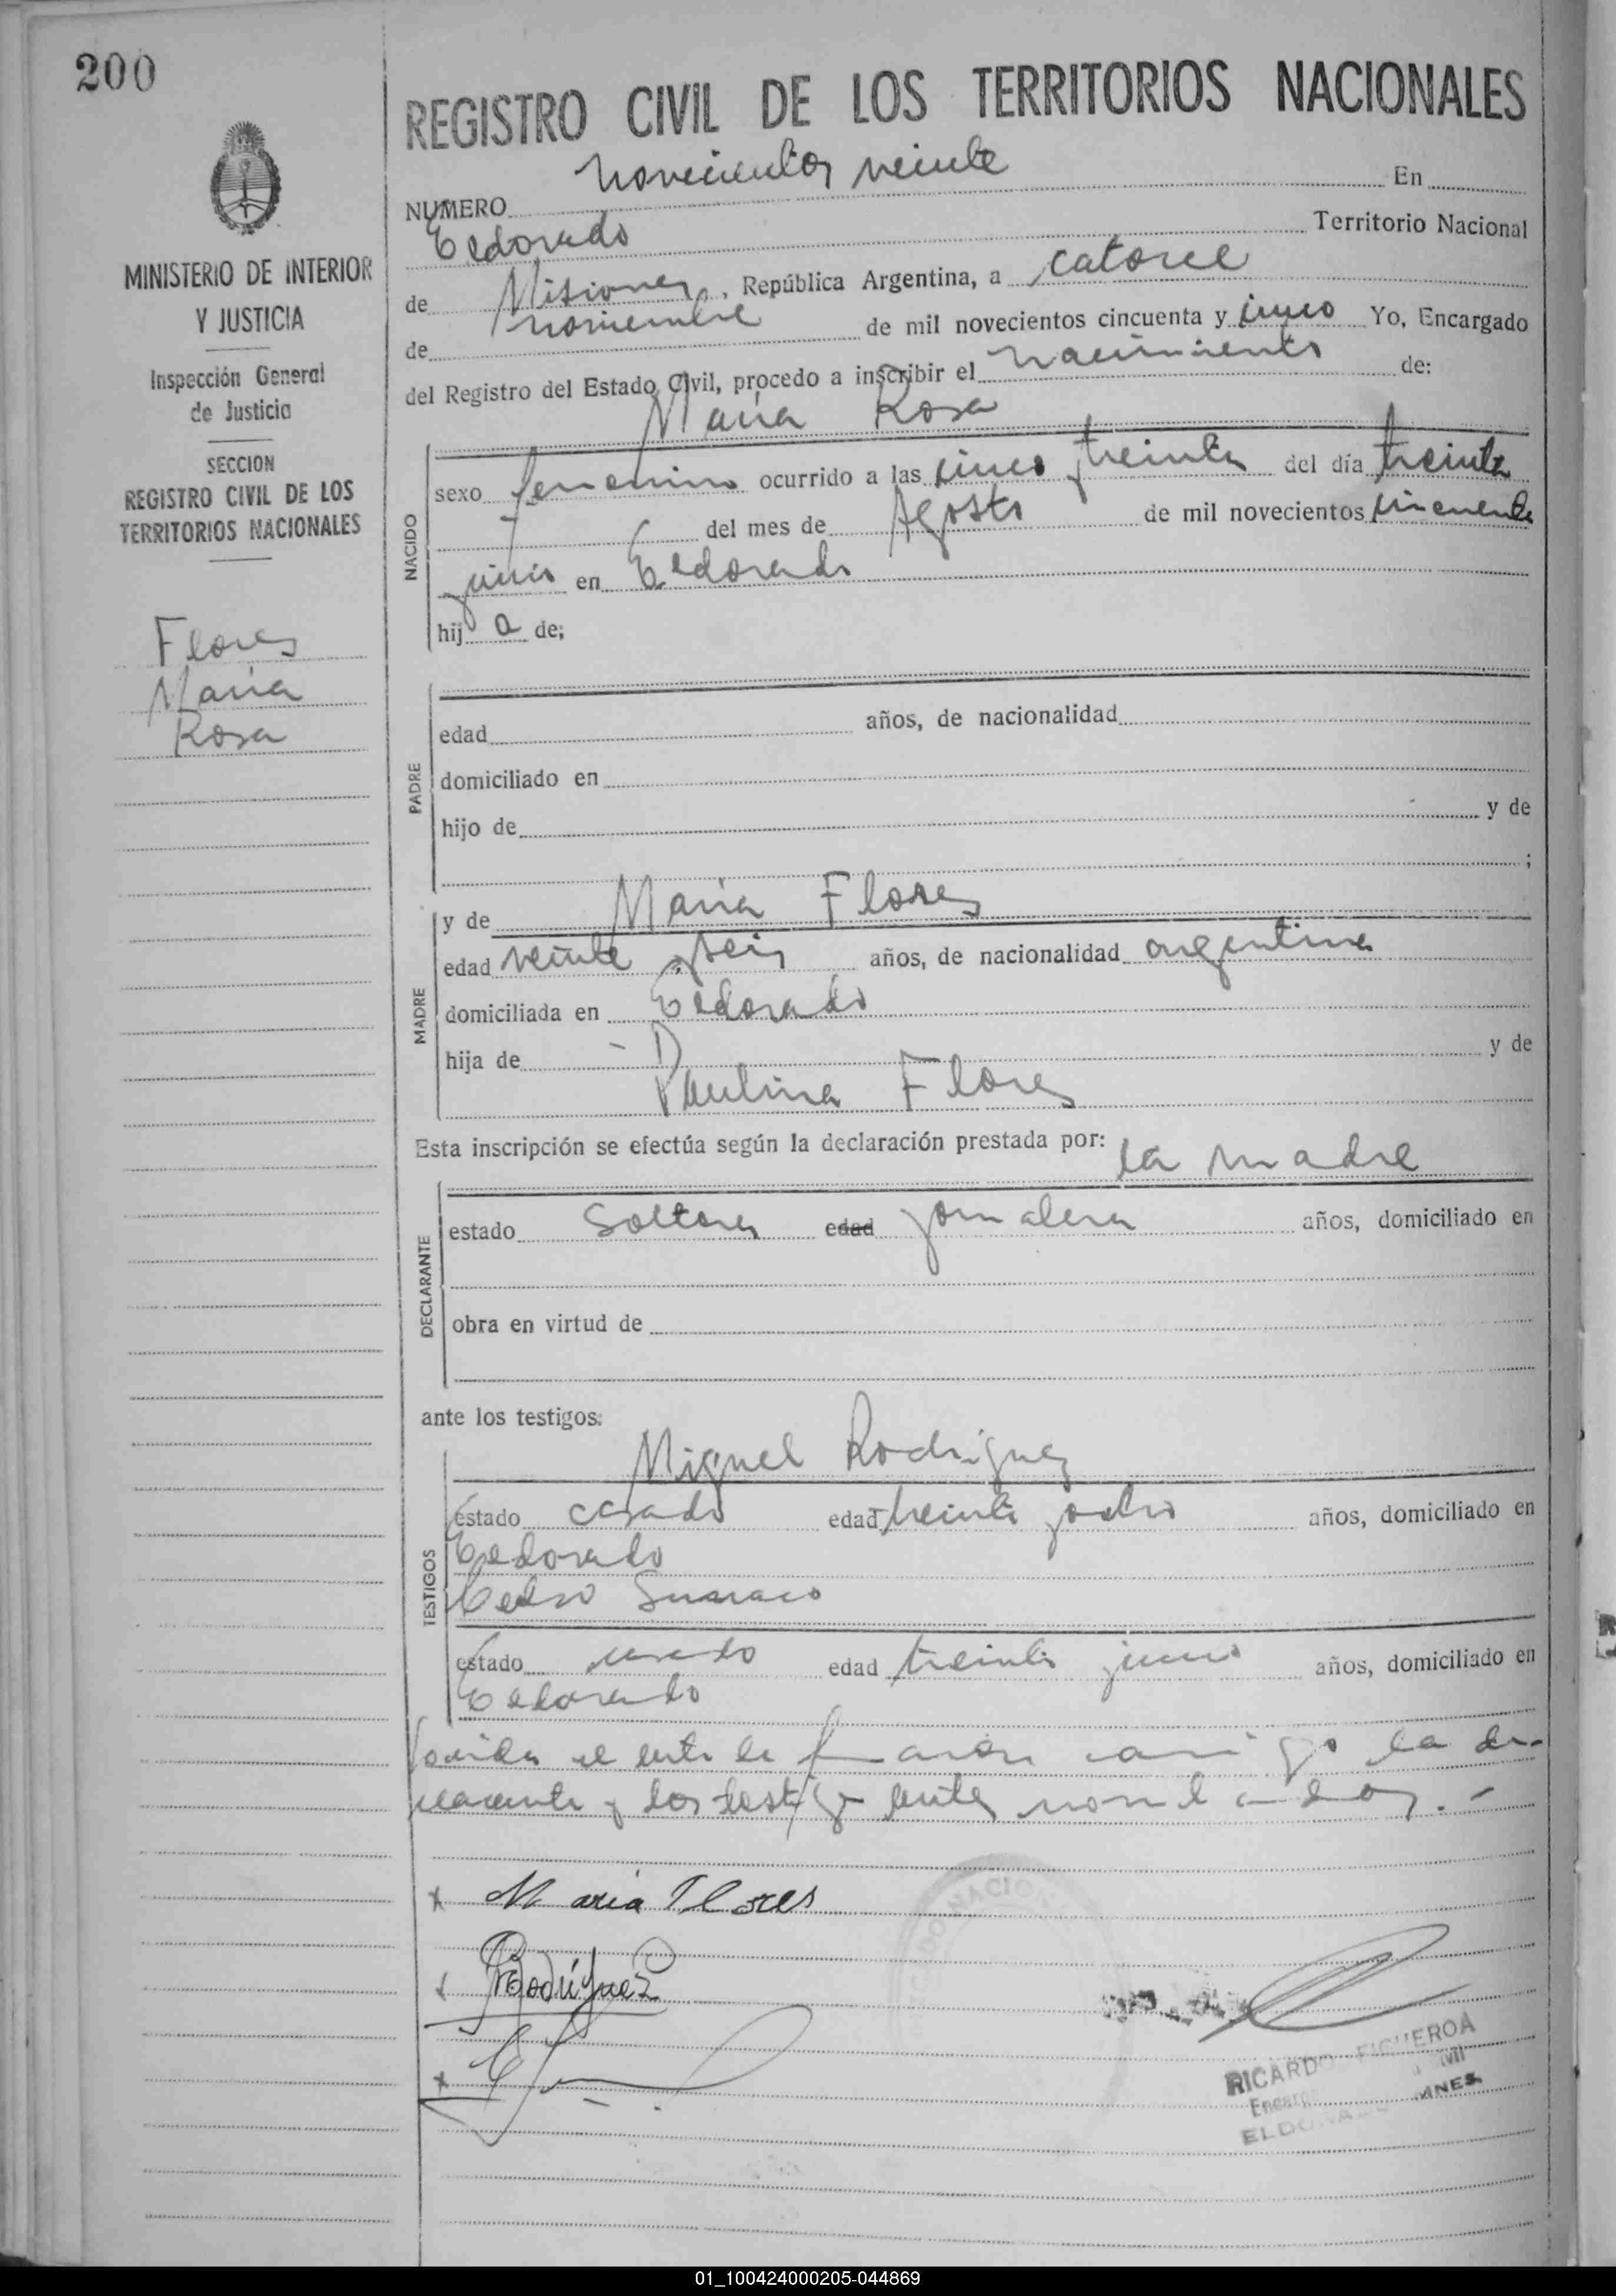 200
MINISTERIO DE INTERIOR
Y JUSTICIA
Inspección General
de Justicia
SECCION
REGISTRO CIVIL DE LOS
TERRITORIOS NACIONALES
Flores
María
Rosa
REGISTRO CIVIL DE LOS TERRITORIOS NACIONALES
NUMERO novecientos veinte En
Eldorado Territorio Nacional
de Misiones, República Argentina, a catorce
de noviembre de mil novecientos cincuenta y cinco Yo, Encargado
del Registro del Estado Civil, procedo a inscribir el nacimiento de:
María Rosa
NACIDO
sexo femenino ocurrido a las cinco y treinta del día treinta
del mes de Agosto de mil novecientos cincuenta
y cinco en Eldorado
hij a de;
PADRE
edad años, de nacionalidad
domiciliado en
hijo de y de
;
MADRE
y de María Flores
edad veinte y seis años, de nacionalidad argentina
domiciliada en Eldorado
hija de - y de
Paulina Flores
Esta inscripción se efectúa según la declaración prestada por: la madre
DECLARANTE
estado soltera edad jornalera años, domiciliado en
obra en virtud de
ante los testigos:
TESTIGOS
Miguel Rodríguez
estado casado edad treinta y ocho años, domiciliado en
Eldorado
Pedro
estado casado edad treinta y cinco años, domiciliado en
Eldorado
el acta la firmaron conmigo la de-
clarante y los testigos antes nombrados. -
x María Flores
x Rodríguez
x
RICARDO FIGUEROA
01_100424000205-044869